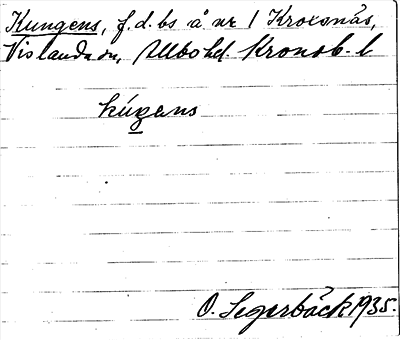 Kungens, f.d. bs å nr 1 Kroxsnäs,
Vislanda sn, Allbo hd. Kronob. l
kúŋens
O. Segerbäck 1935.